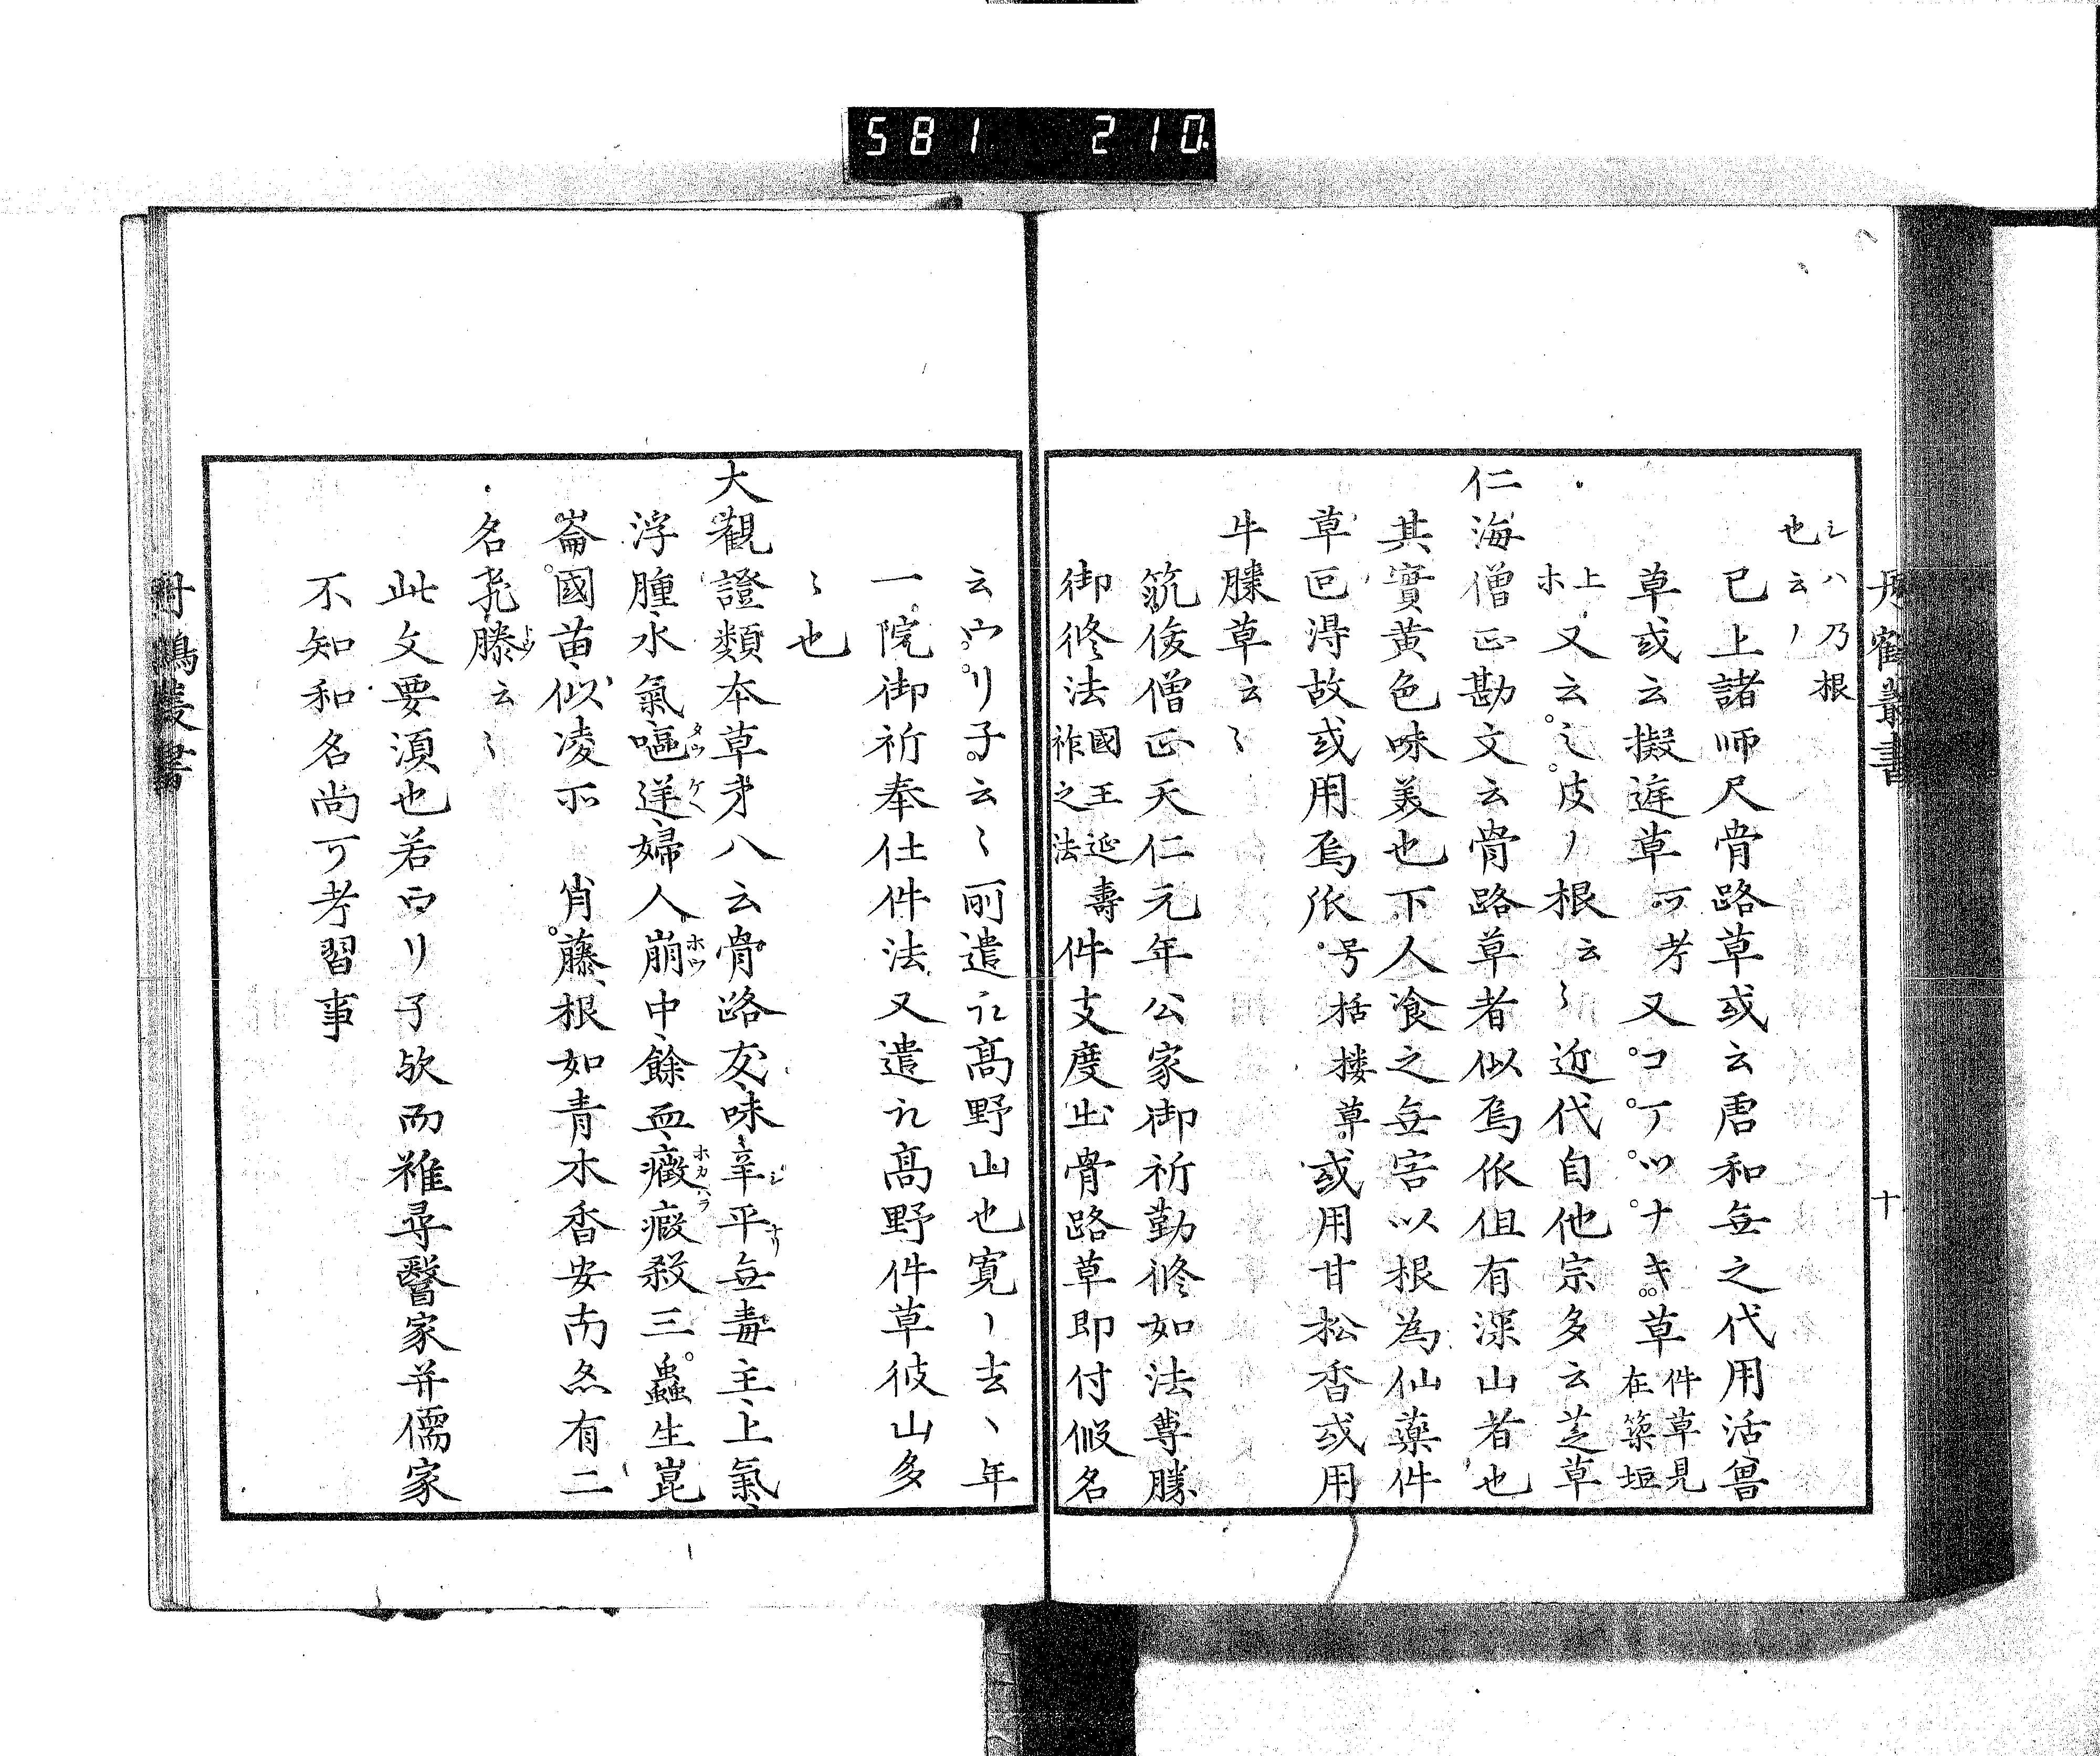 581 210
丹鶴叢書
十
シハ乃根
也云ノ
已上諸師尺骨路草或云唐和無之代用活魯
草或云擬遅草可考又コアツナキ草件草見在築垣
上ホ又云之皮ノ根云〻近代自他宗多云芝草
仁海僧正勘文云骨路草者似烏依但有深山者也
其實黄色味美也下人飡之無害以根為仙薬件
草叵得故或用烏依号栝楼草或用甘松香或用
牛膝草云〻
筑俊僧正天仁元年公家御祈勤修如法尊勝
御修法國王延壽祚之法件支度出骨路草即付假名
云ウリ子云〻所遣取高野山也寛〻去〻年
一院御祈奉仕件法又遣取高野件草彼山多
〻也
大觀證類本草才八云骨路支味辛平無毒主上氣
浮腫水氣嘔逆婦人崩中餘血癥瘕殺三蟲生崑
崙國苗似凌霄藤根如青木香安南亦有二
名尭滕云〻
此文要湏也若ウリ子歟而雖尋醫家并儒家
不知和名尚可考習事
丹鶴叢書